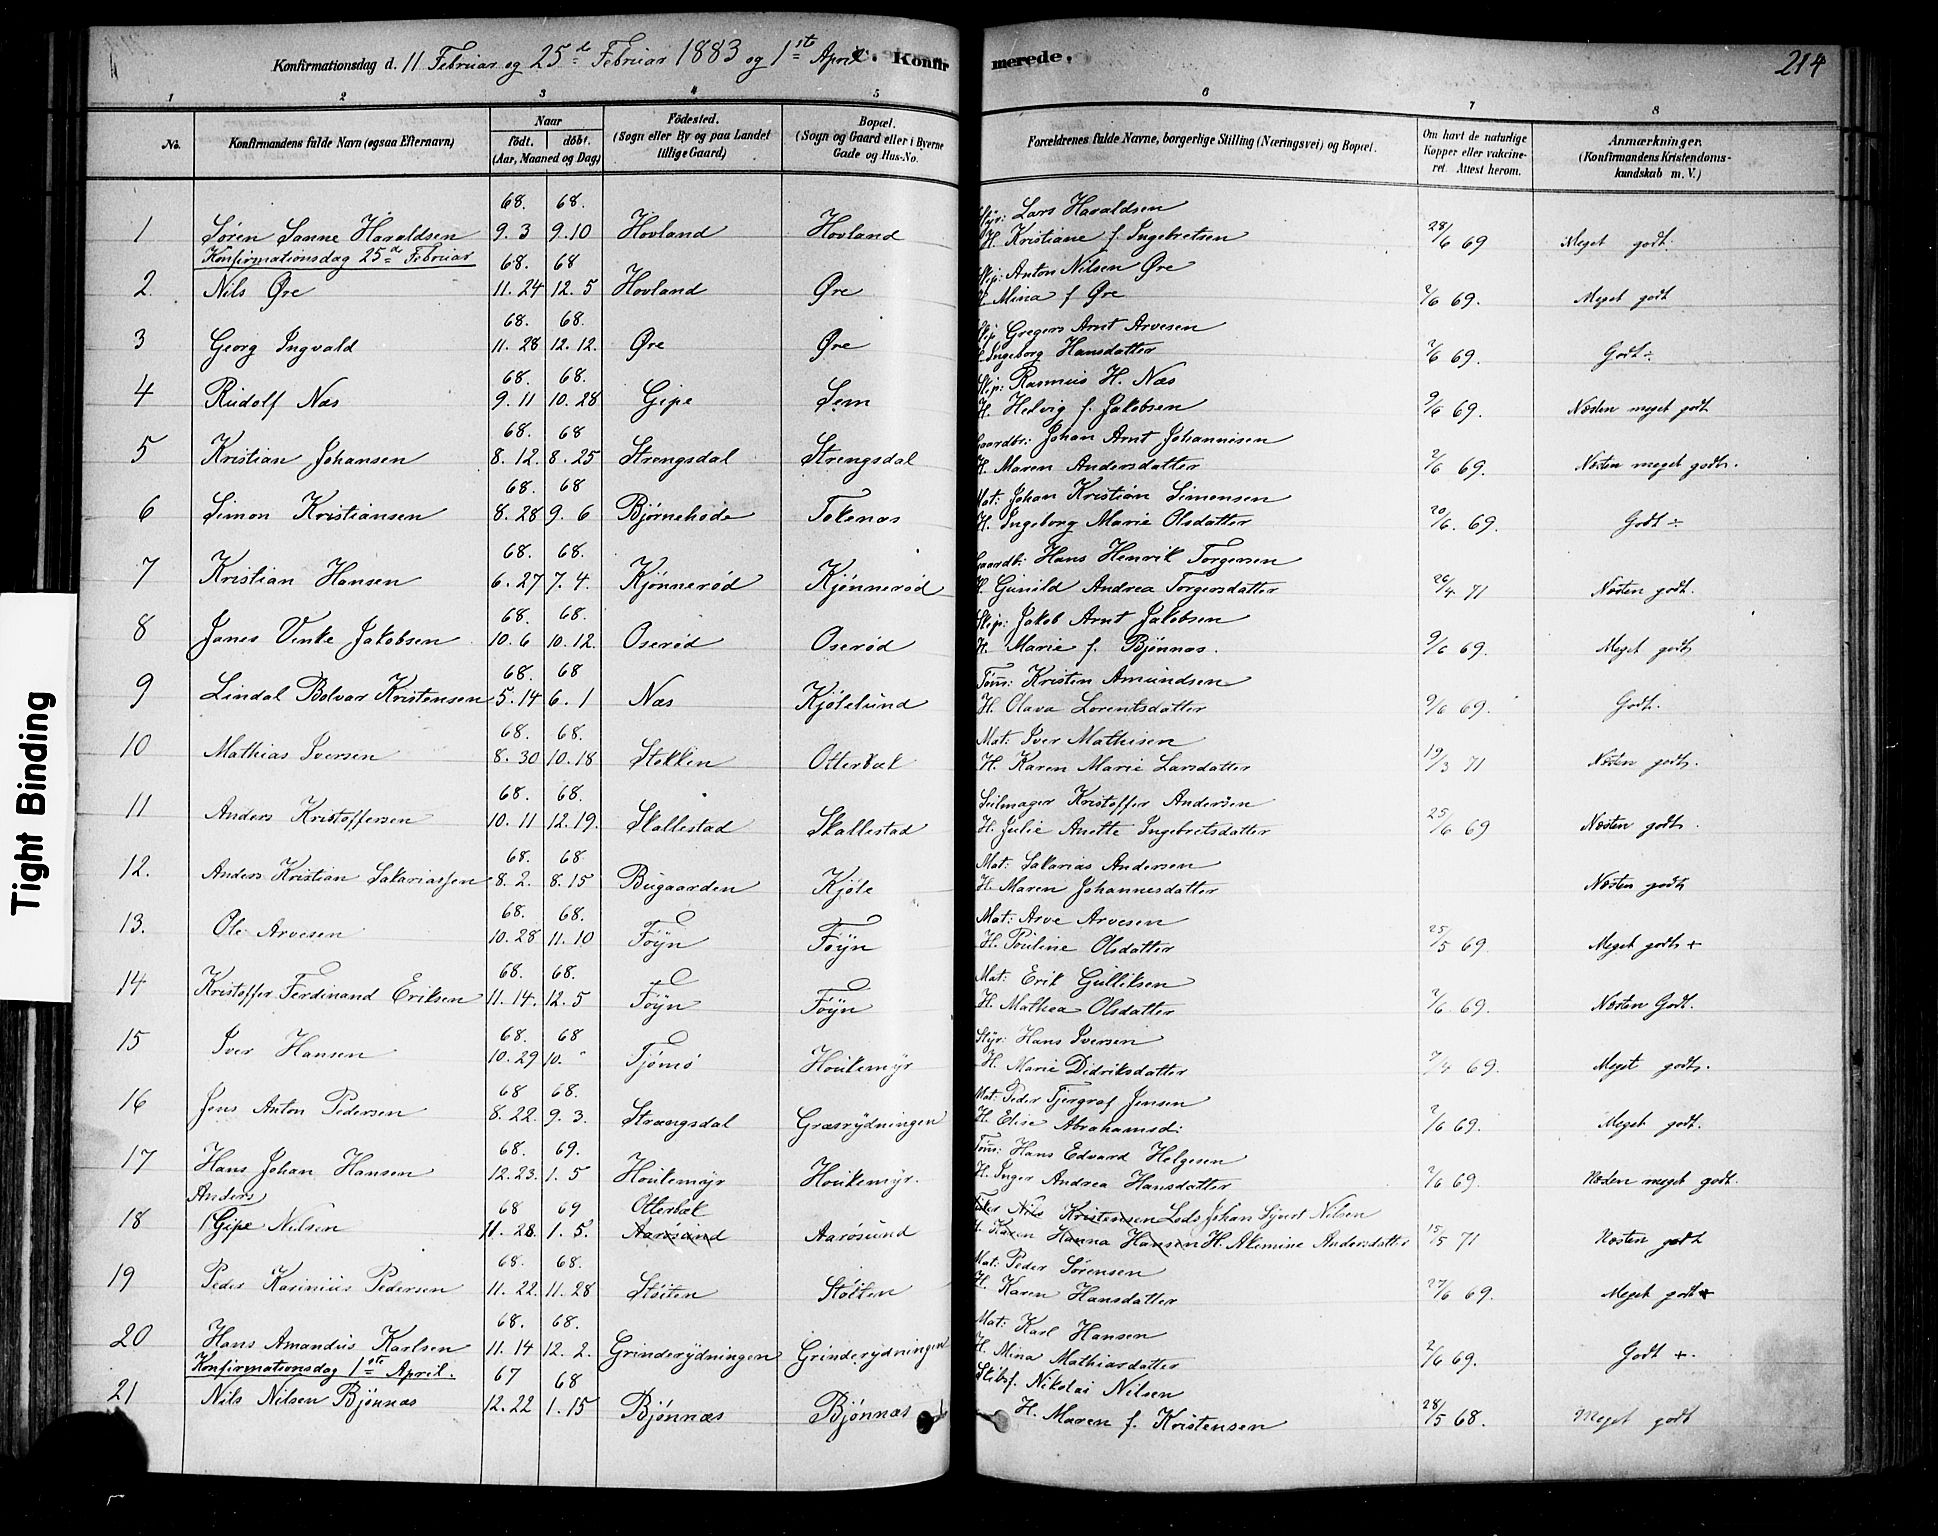 Konfirmationsdag d. 11 Februar og 25de Februar 1883 og 1ste April C. Konfirmerede. 214
1 2 3 4 5 6 7 8
No. Konfirmandens fulde Navn (ogsaa Efternavn) Naar født. døbt. (Aar, Maaned og Dag) Fødested. (Sogn eller By og paa Landet tillige Gaard) Bopæl. (Sogn og Gaard eller i Byerne Gade og Hus-No. Forældrenes fulde Navne, borgerlige Stilling (Næringsvei) og Bopæl. Om havt de naturlige Kopper eller vakcineret. Attest herom. Anmærkninger. (Konfirmandens Kristendomskundskab m. V.)
68. 68. Styr: Lars Haraldsen
1 Søren Sanne Haraldsen 9. 3 9. 10 Hovland Hovland H. Kristiane f. Ingebretsen 28/6 69 Meget godt.
Konfirmationsdag 25de Februar
68. 68 Skip: Anton Nilsen Øre
2. Nils Øre 11. 24 12. 5 Hovland Øre H. Mina f Øre 2/6 69. Meget godt
68. 68. Skip Gregers Arnt Arvesen
3 Georg Ingvald 11. 28 12. 12. Øre Øre H. Ingeborg Hansdatter 2/6 69. Godt ÷
68. 68. Skip: Rasmus H. Næs
4 Rudolf Næs 9. 11 10. 28 Gipø Sem H. Hedvig f. Jakobsen 9/6 69. Næsten meget godt
68. 68 Gaardbr: Johan Arnt Johannisen
5 Kristian Johansen 8. 12. 8. 25 Strengsdal Strengsdal H. Maren Andersdatter 2/6 69. Næsten meget godt.
68. 68 Mat: Johan Kristian Simonsen
6 Simon Kristiansen 8. 28 9. 6 Bjørnehode Tokenæs H. Ingeborg Marie Olsdatter 20/6. 69. Godt ÷
68. 68. Gaardb: Hans Henrik Torgersen
7 Kristian Hansen 6. 27 7. 4. Kjønnerød Kjønnerød H. Gunild Andrea Torgersdatter 26/4 71 Næsten godt.
68. 68. Skip: Jakob Arnt Jakobsen
8 Janes Vinke Jakobsen 10. 6 10. 12. Oserød Oserød H. Marie f. Bjønnæs. 9/6 69. Meget godt
68. 68 Tøm: Kristen Amundsen
9 Lindal Bolvar Kristensen 5. 14 6. 1 Næs Kjølelund H. Olava Lorentsdatter 9/6 69. Godt.
68. 68. Mat: Iver Mathisen
10 Mathias Iversen 8. 30 10. 18 Stokken Otterbæk H. Karen Marie Larsdatter 19/3 71 Næsten godt.
68. 68. Seilmager Kristoffer Andersen
11 Anders Kristoffersen 10. 11 12. 19. Skallestad Skallestad H. Julie Anette Ingebretsdatter 25/6 69 Næsten godt.
68. 68. Mat: Sakarias Andersen
12. Anders Kristian Sakariassen 8. 2. 8. 15 Bugaarden Kjøle H. Maren Johannesdatter Næsten godt
68. 68. Mat: Arve Arvesen
13. Ole Arvesen 10. 28 11. 10 Føyn Føyn H. Pouline Olsdatter 25/5 69. Meget godt +
68. 68. Mat: Erik Gulliksen
14 Kristoffer Ferdinand Eriksen 11. 14. 12. 5 Føyn Føyn H. Mathea Olsdatter 2/6 69. Næsten Godt.
68. 68 Styr: Hans Iversen
15 Iver Hansen 10. 29 10. " Tjømø Houkemyr H. Marie Didriksdatter 7/4 69. Meget godt.
68 68. Mat: Peder Jensen
16 Jens Anton Pedersen 8. 22. 9. 3. Strængsdal Græsrydningen H. Elise Abrahamsd: 2/6 69. Meget godt.
68. 69. Tøm: Hans Edvard Helgesen
17 Hans Johan Hansen 12. 23. 1. 5 Houkemyr Houkemyr. H. Inger Andrea Hansdatter 2/6 69. Næsten meget godt.
Anders 68 69 Otterbæk Nils Kristensen Lods Johan Sjvert Nilsen
18 Gipe Nilsen 11. 28. 1. 5. Aarøsund Aarøsund H. Karen Hanna Hansen H. Alemine Andersdatter 15/5 71 Næsten godt
68. 68. Mat: Peder Sørensen
19 Peder Kasimius Pedersen 11. 22. 11. 28 Støiten Støiten H. Karen Hansdatter 27/6 69. Meget godt
68. 68. Mat: Karl Hansen
20 Hans Amandus Karlsen 11. 14 12. 2. Grinderydningen Grinderydningen H. Mina Mathiasdatter 2/6 69. Godt +.
Konfirmationsdag 1ste April.
67 68 Skibsf. Nikolai Nilsen
21 Nils Nilsen Bjønnæs 12. 22 1. 15 Bjønnæs Bjønnæs H. Maren f. Kristensen 28/5 68. Meget godt
Tight Binding